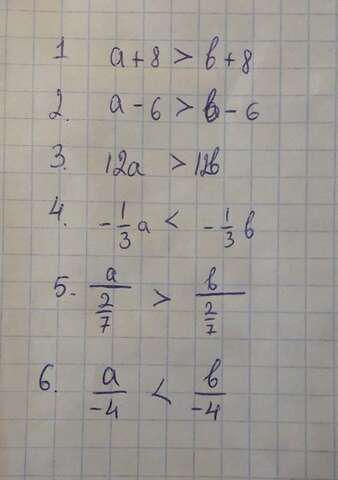 1 a + 8 > b + 8
2. a - 6 > b - 6
3. 12a > 12b
4. -1/3 a < -1/3 b
5. a/(2/7) > b/(2/7)
6. a/-4 < b/-4